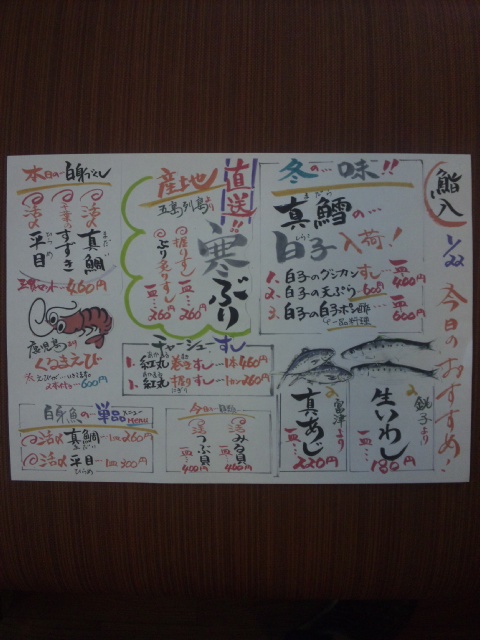 鮨人
1/22
今日のおすすめ!
冬の…味!!
真鱈の…
まだら
白子入荷!
しらこ
1. 白子のグンカンすし… 一皿400円
2. 白子の天ぷら 600円
3. 白子の白子ポン酢… 一皿600円
一品料理
産地
直送!!
五島列島より
寒ぶり
握りずし
一皿…260円
ぶり炙りずし
一皿…260円
本日の…白身づくし
活〆 真鯛
まだい
すずき
活〆 平目
ひらめ
460円
鹿児島より
くるまえび
2本付 600円
チャーシューすし
1. 紅丸 巻きずし…1本460円
1. 紅丸 握りずし…1皿260円
にぎり
銚子より
生いわし
一皿… 180円
富津より
真あじ
一皿… 220円
白身魚の…単品メニュー
menu
活〆 真鯛… 1皿260円
活〆 平目… 1皿300円
ひらめ
今日の…貝類
活 みる貝
一皿… 460円
活 つぶ貝
一皿… 400円